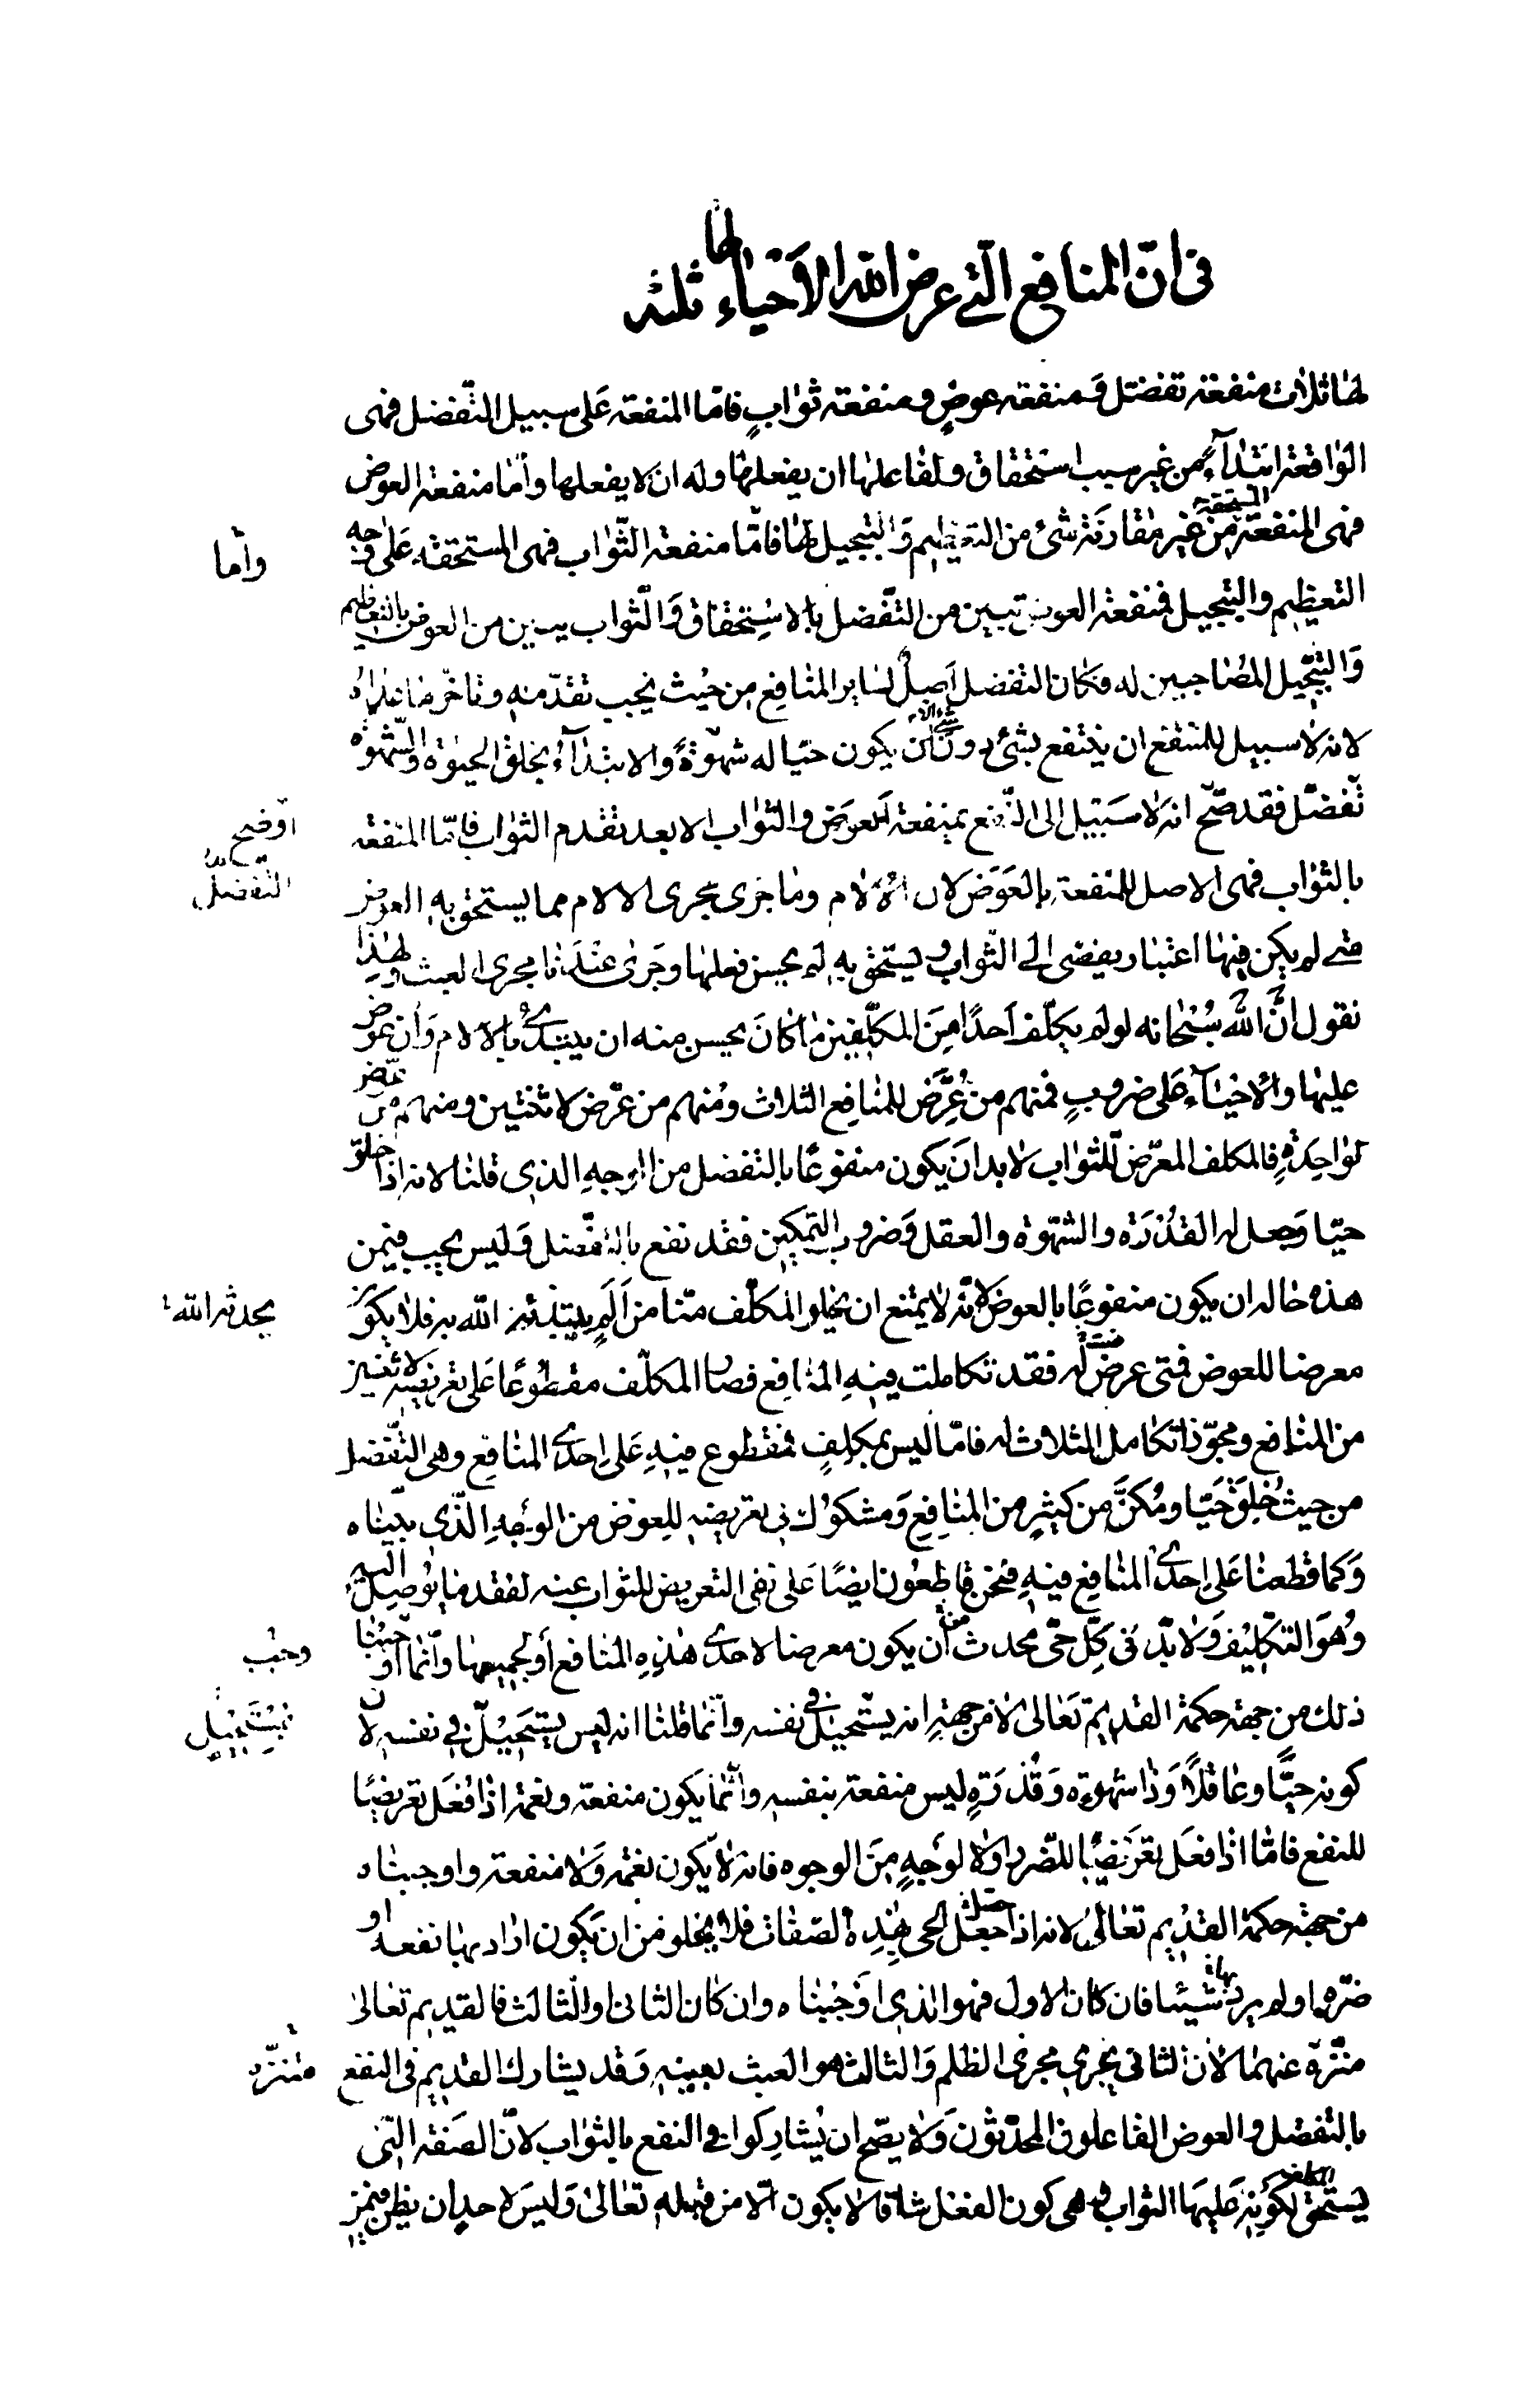 في ان المنافع التي عرض الله الاحياء لها ثلثة
لها ثلاث منفعة تفضل ومنفعة عوض ومنفعة ثواب فاما المنفعة على سبيل التفضل فهى
الواقعة ابتداء من غير سبب استحقاق ولفاعلها ان يفعلها وله ان لا يفعلها وأما منفعة العوض
فهى المنفعة المستحقة من غير مقارنة شئ من التعظيم والتبجيل لها فاما منفعة الثواب فهى المستحقة على وجه
واما
التعظيم والتبجيل فمنفعة العوض تبين من التفضل بالاستحقاق والثواب يبين من العوض بالتعظيم
والتبجيل المصاحبين له وكان التفضل اصل لساير المنافع من حيث يجب تقدمه وتاخر ما عداه
لانه لا سبيل للمنتفع ان ينتفع بشئ دون ان يكون حيا له شهوة والابتداء بخلق الحيوة والشهوة
تفضل فقد صح انه لا سبيل الى النفع بمنفعة العوض والثواب الا بعد تقدم الثواب فاما المنفعة
اوضح
التفضل
بالثواب فهى الاصل للمنفعة بالعوض لان الالام وما جرى مجرى الالام مما يستحق به العوض
متى لم يكن فيها اعتبار يفضى الى الثواب ويستحق به لم يحسن فعلها وجرى عندنا مجرى العبث ولهذا
نقول ان الله سبحانه لو لم يكلف احدا من المكلفين ما كان يحسن منه ان يبتدئ بالالام وان عوض
عليها والاحياء على ضروب فمنهم من عرض للمنافع الثلاث ومنهم من عرض لاثنتين ومنهم من عرض
لواحدة فالمكلف المعرض للثواب لا بد ان يكون منفوعا بالتفضل من الوجه الذى قلنا لانه اذا خلق
حيا وجعل له القدرة والشهوة والعقل وضروب التمكين فقد نفع بالتفضل وليس يجب فيمن
هذه حاله ان يكون منفوعا بالعوض لانه لا يمتنع ان يخلو المكلف منا من الم يبتدئه الله به فلا يكون
يحدثه الله
معرضا للعوض فمتى عرض له فقد تكاملت فيه المنافع فصار المكلف مقطوعا على تعريضه لاثنين
من المنافع ومجوزا تكامل الثلاث له فاما ليس بمكلف فمقطوع فيه على احدى المنافع وهى التفضل
من حيث خلق حيا ومكن من كثير من المنافع ومشكوك فى تعريضه للعوض من الوجه الذى بيناه
وكما قطعنا على احدى المنافع فيه فنحن قاطعون ايضا على نفى التعريض للثواب عنه لفقد ما يوصل اليه
وهو التكليف ولا بد فى كل حى محدث من ان يكون معرضا لاحدى هذه المنافع او لجميعها وانما اوجبنا
وجب
ذلك من جهة حكمة القديم تعالى لا من جهة انه يستحيل فى نفسه وانما قلنا انه ليس يستحيل فى نفسه لان
بمستحيل
كونه حيا وعاقلا وذا شهوة وقدرة ليس منفعة بنفسه وانما يكون منفعة ونعمة اذا فعل تعريضا
للنفع فاما اذا فعل تعريضا للضرر او لا لوجه من الوجوه فانه لا يكون نعمة ولا منفعة واوجبناه
من جهة حكمة القديم تعالى لانه اذا جعل الحى بهذه الصفات فلا يخلو من ان يكون اراد بها نفعه او
ضره او لم يرد بها شيئا فان كان الاول فهو الذى اوجبناه وان كان الثانى او الثالث فالقديم تعالى
منزه عنهما لان الثانى يجرى مجرى الظلم والثالث هو العبث بعينه وقد يشارك القديم فى النفع
متنزه
بالتفضل والعوض الفاعلون المحدثون ولا يصح ان يشاركوا فى النفع بالثواب لان الصفة التى
يستحق لكونه عليها الثواب وهى كون الفعل شاقا لا يكون الا من قبله تعالى وليس لاحد ان يظن فيمن